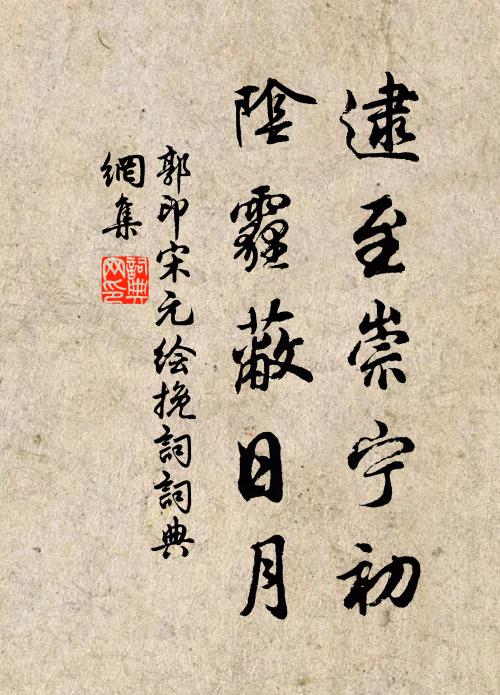 逮至崇宁初
陰霾蔽日月
郭印宋元绘挽詞詞典
網集
詞典
网印